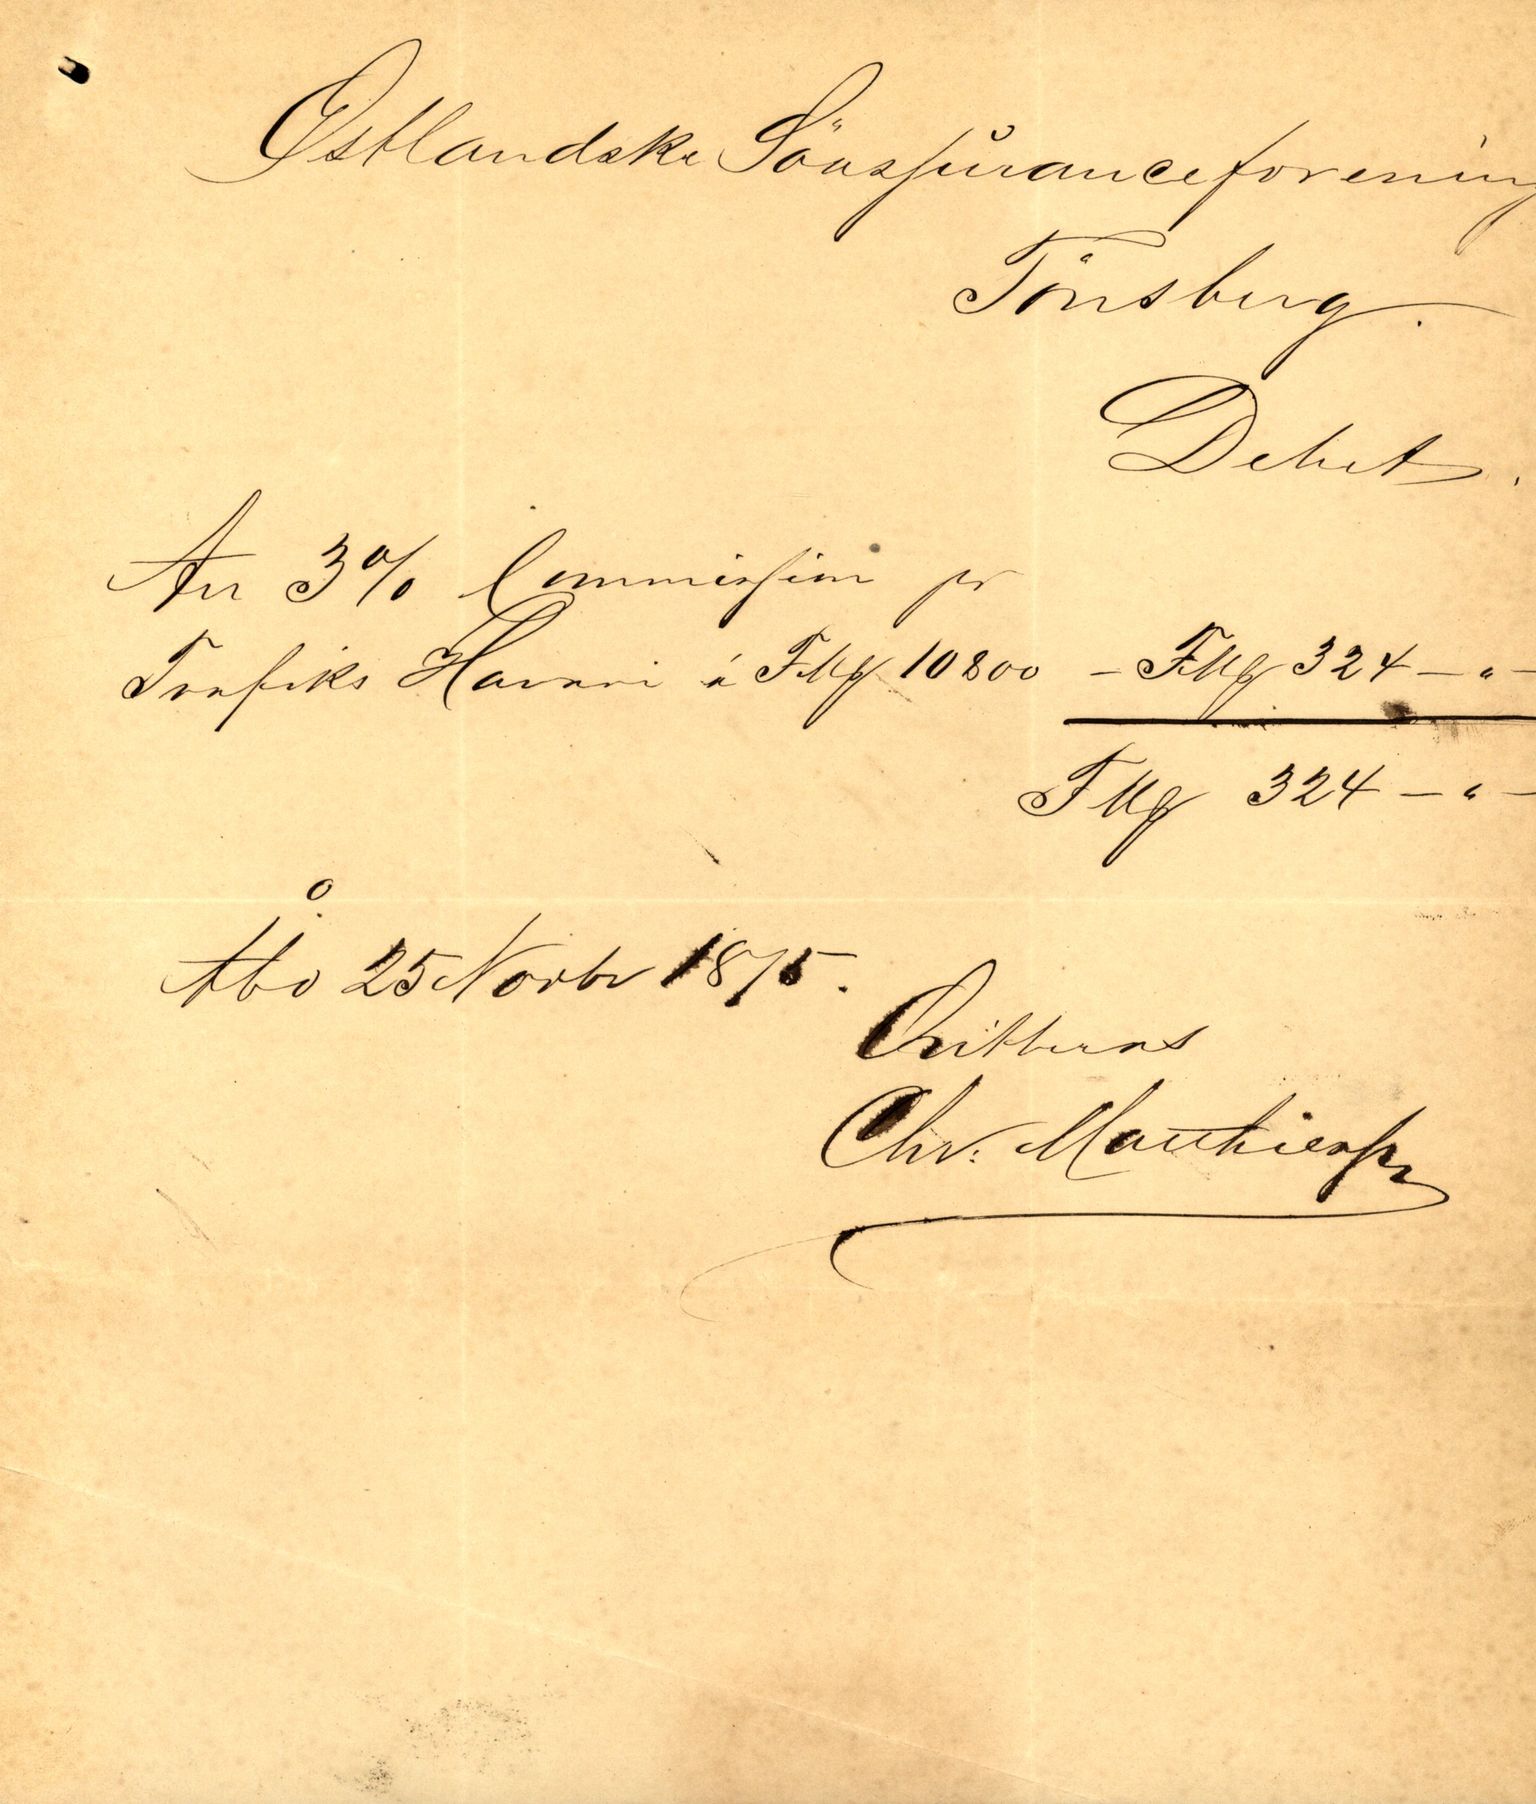 Østlandske Söassuranceforening
Tönsberg.
Debet.
An 3% Commission pr
Trafiks Havari á FMg 10800 – FMg 324 – " –
FMg 324 – " –
Åbo 25 Novbr 1875.
Qvitteras
Chr: Matthiessen